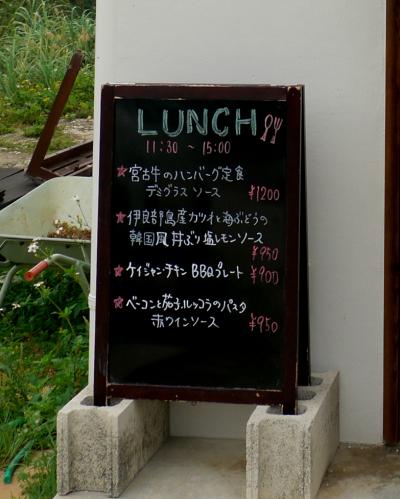 LUNCH
11:30 ~ 15:00
★宮古牛のハンバーグ定食
デミグラス ソース ¥1200
★伊良部島産カツオと海ぶどうの
韓国風 丼ぶり 塩レモンソース
¥950
★ケイジャンチキン BBQプレート ¥900
★ベーコンと茄子、ルッコラのパスタ
赤ワインソース ¥950